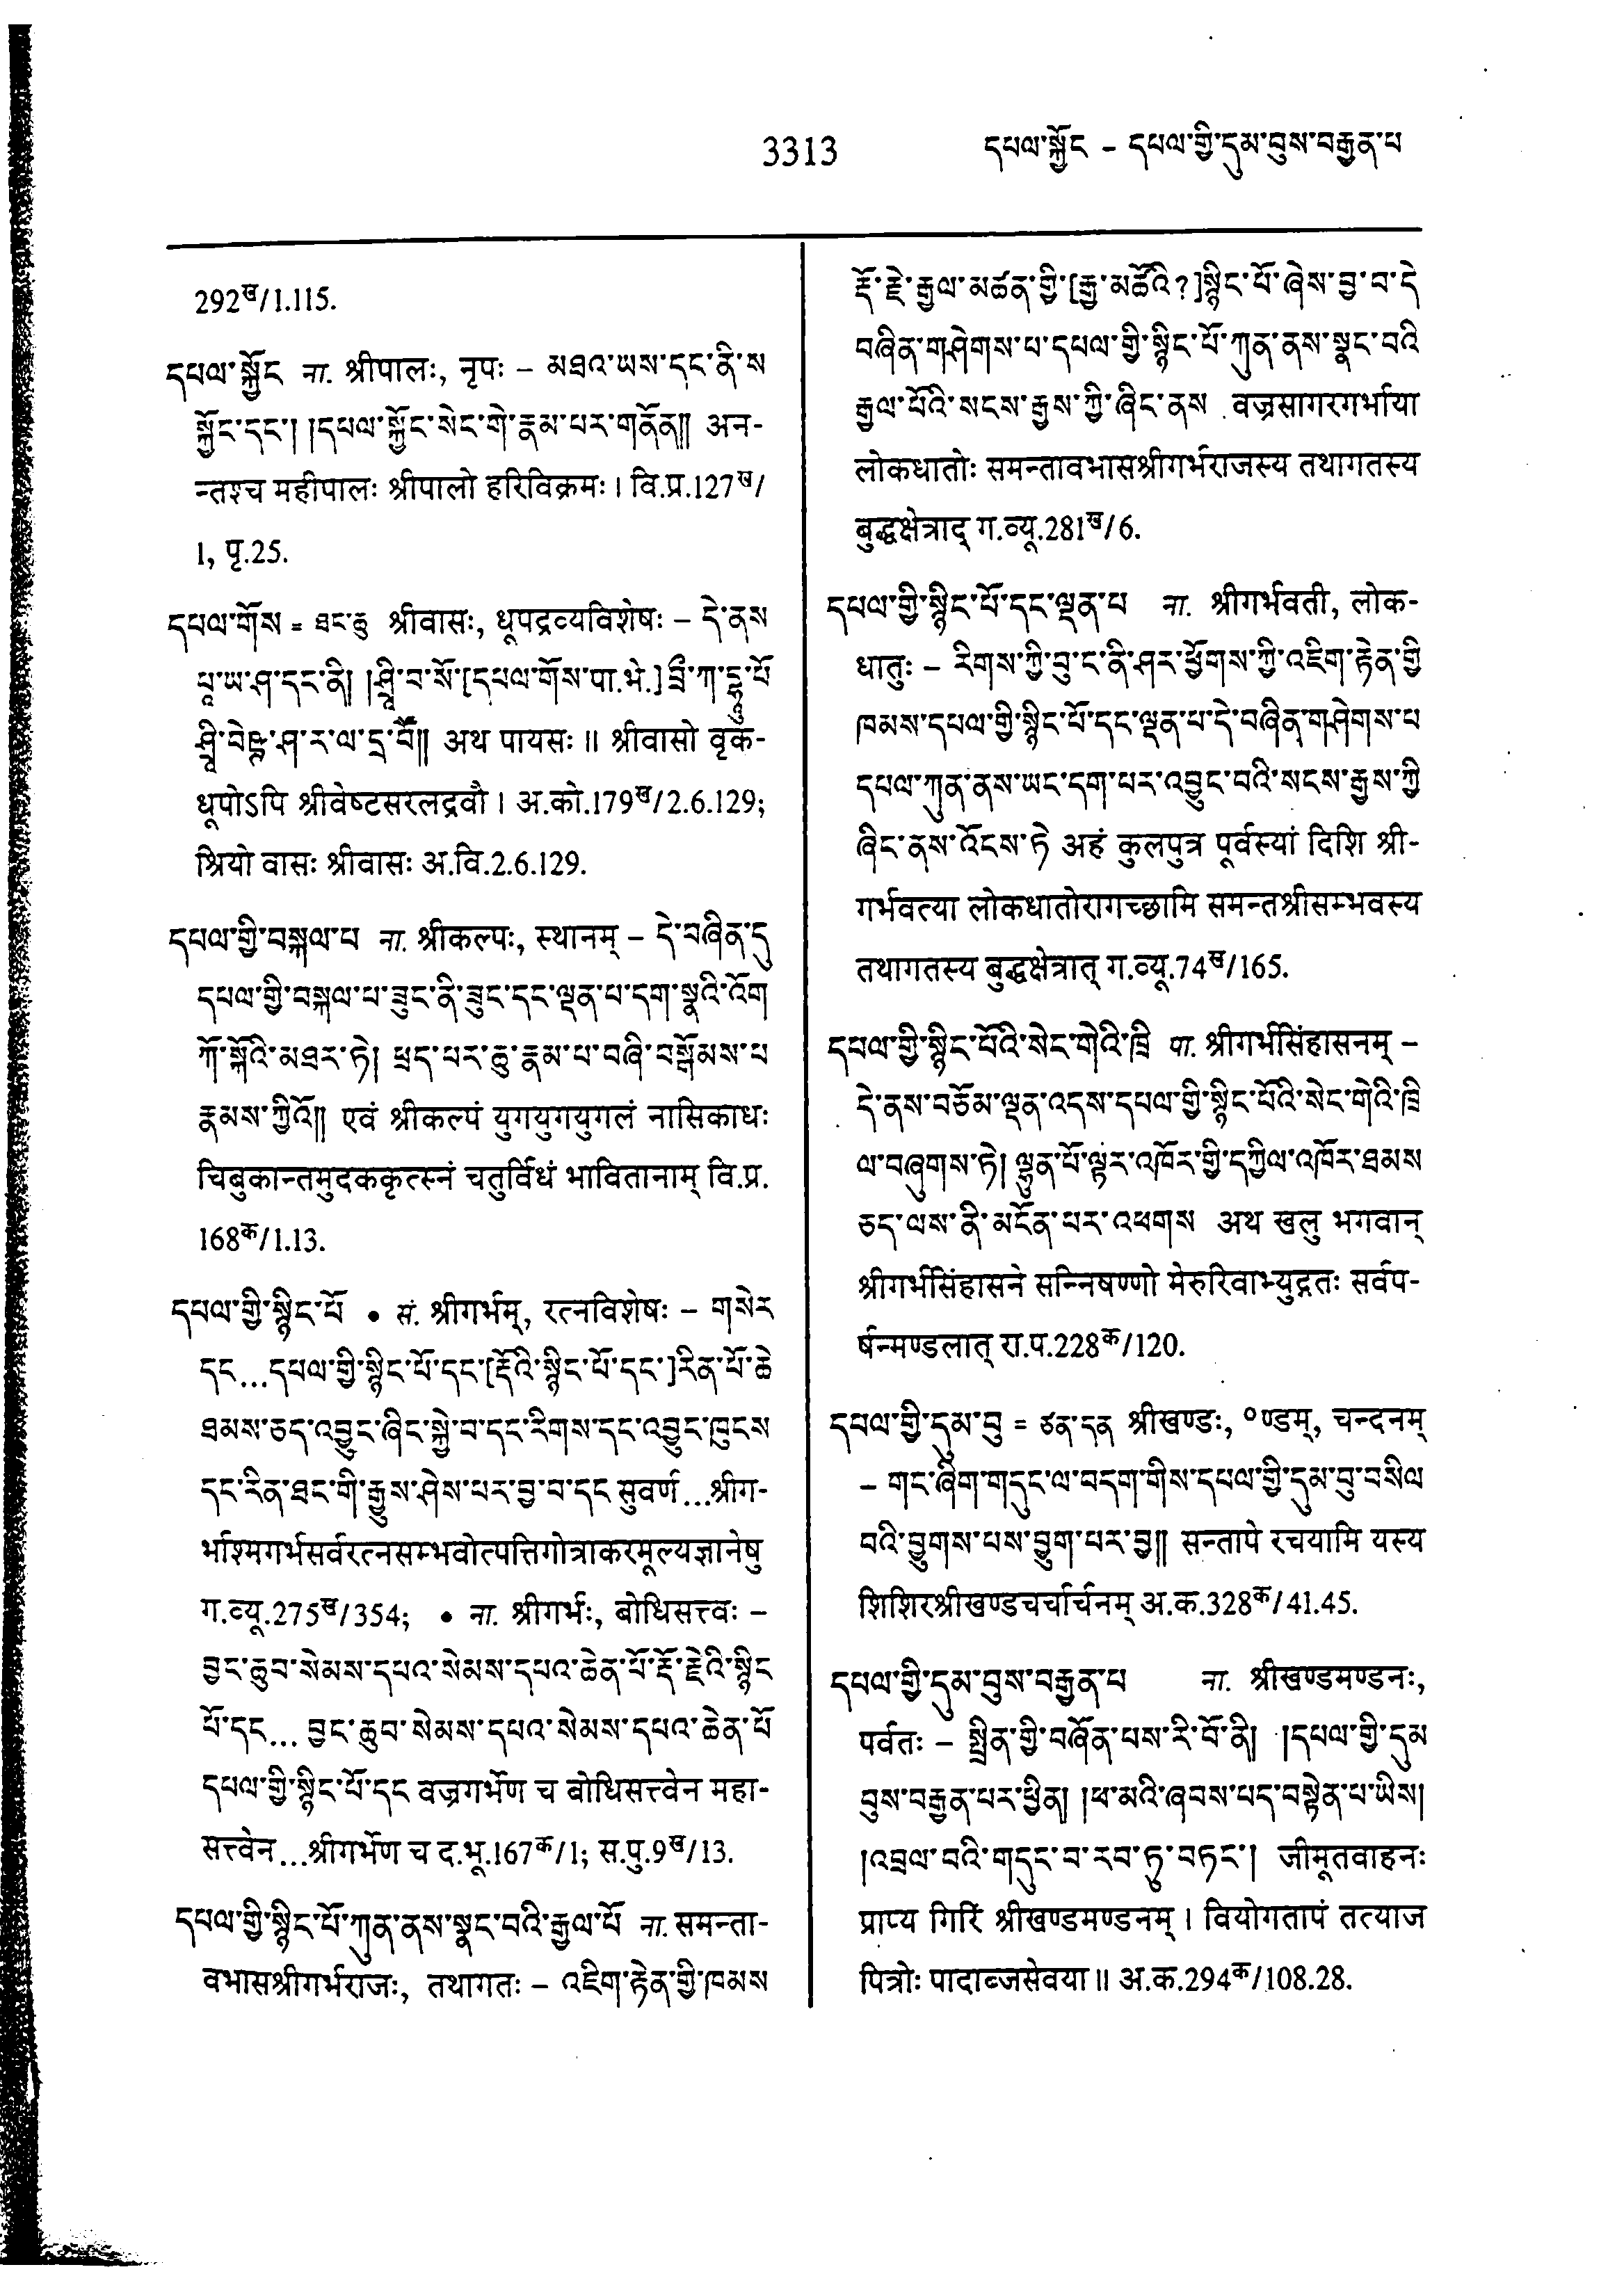 3313 དཔལ་སྐྱོང – དཔལ་གྱི་དུམ་བུས་བརྒྱན་པ
292ख/1.115.
དཔལ་སྐྱོང ना. श्रीपालः, नृपः – མཐའ་ཡས་དང་ནི་ས
སྐྱོང་དང་། །དཔལ་སྐྱོང་སེང་གེ་རྣམ་པར་གནོན༎ अन-
न्तश्च महीपालः श्रीपालो हरिविक्रमः। वि.प्र.127ख/
1, पृ.25.
དཔལ་གོས = ཐང་ཆུ श्रीवासः, धूपद्रव्यविशेषः – དེ་ནས
པཱ་ཡ་ཤ་དང་ནི། །ཤྲཱི་བ་སོ་[དཔལ་གོས་पा.भे.]བྲྀ་ཀ་དྷཱུ་པོ
ཤྲཱི་བེཥྚ་ཤ་ར་ལ་དྲ་བཽ༎ अथ पायसः॥ श्रीवासो वृक-
धूपोऽपि श्रीवेष्टसरलद्रवौ। अ.को.179ख/2.6.129;
श्रियो वासः श्रीवासः अ.वि.2.6.129.
དཔལ་གྱི་བསྐལ་པ ना. श्रीकल्पः, स्थानम् – དེ་བཞིན་དུ
དཔལ་གྱི་བསྐལ་པ་ཟུང་ནི་ཟུང་དང་ལྡན་པ་དག་སྣའི་འོག
ཀོ་སྐོའི་མཐར་ཏེ། ཕྲད་པར་ཆུ་རྣམ་པ་བཞི་བསྒོམས་པ
རྣམས་ཀྱིའོ༎ एवं श्रीकल्पं युगयुगयुगलं नासिकाधः
चिबुकान्तमुदककृत्स्नं चतुर्विधं भावितानाम् वि.प्र.
168क/1.13.
དཔལ་གྱི་སྙིང་པོ • सं. श्रीगर्भम्, रत्नविशेषः – གསེར
དང...དཔལ་གྱི་སྙིང་པོ་དང་[རྡོའི་སྙིང་པོ་དང་]རིན་པོ་ཆེ
ཐམས་ཅད་འབྱུང་ཞིང་སྐྱེ་བ་དང་རིགས་དང་འབྱུང་ཁུངས
དང་རིན་ཐང་གི་རྒྱུས་ཤེས་པར་བྱ་བ་དང सुवर्ण...श्रीग-
र्भाश्मगर्भसर्वरत्नसम्भवोत्पत्तिगोत्राकरमूल्यज्ञानेषु
ग.व्यू.275ख/354; • ना. श्रीगर्भः, बोधिसत्त्वः –
བྱང་ཆུབ་སེམས་དཔའ་སེམས་དཔའ་ཆེན་པོ་རྡོ་རྗེའི་སྙིང
པོ་དང... བྱང་ཆུབ་སེམས་དཔའ་སེམས་དཔའ་ཆེན་པོ
དཔལ་གྱི་སྙིང་པོ་དང वज्रगर्भेण च बोधिसत्त्वेन महा-
सत्त्वेन...श्रीगर्भेण च द.भू.167क/1; स.पु.9ख/13.
དཔལ་གྱི་སྙིང་པོ་ཀུན་ནས་སྣང་བའི་རྒྱལ་པོ ना. समन्ता-
वभासश्रीगर्भराजः, तथागतः – འཇིག་རྟེན་གྱི་ཁམས
རྡོ་རྗེ་རྒྱལ་མཚན་གྱི་[རྒྱ་མཚོའི?]སྙིང་པོ་ཞེས་བྱ་བ་དེ
བཞིན་གཤེགས་པ་དཔལ་གྱི་སྙིང་པོ་ཀུན་ནས་སྣང་བའི
རྒྱལ་པོའི་སངས་རྒྱས་ཀྱི་ཞིང་ནས वज्रसागरगर्भाया
लोकधातोः समन्तावभासश्रीगर्भराजस्य तथागतस्य
बुद्धक्षेत्राद् ग.व्यू.281ख/6.
དཔལ་གྱི་སྙིང་པོ་དང་ལྡན་པ ना. श्रीगर्भवती, लोक-
धातुः – རིགས་ཀྱི་བུ་ང་ནི་ཤར་ཕྱོགས་ཀྱི་འཇིག་རྟེན་གྱི
ཁམས་དཔལ་གྱི་སྙིང་པོ་དང་ལྡན་པ་དེ་བཞིན་གཤེགས་པ
དཔལ་ཀུན་ནས་ཡང་དག་པར་འབྱུང་བའི་སངས་རྒྱས་ཀྱི
ཞིང་ནས་འོངས་ཏེ अहं कुलपुत्र पूर्वस्यां दिशि श्री-
गर्भवत्या लोकधातोरागच्छामि समन्तश्रीसम्भवस्य
तथागतस्य बुद्धक्षेत्रात् ग.व्यू.74ख/165.
དཔལ་གྱི་སྙིང་པོའི་སེང་གེའི་ཁྲི पा. श्रीगर्भसिंहासनम् –
དེ་ནས་བཅོམ་ལྡན་འདས་དཔལ་གྱི་སྙིང་པོའི་སེང་གེའི་ཁྲི
ལ་བཞུགས་ཏེ། ལྷུན་པོ་ལྟར་འཁོར་གྱི་དཀྱིལ་འཁོར་ཐམས
ཅད་ལས་ནི་མངོན་པར་འཕགས अथ खलु भगवान्
श्रीगर्भसिंहासने सन्निषण्णो मेरुरिवाभ्युद्गतः सर्वप-
र्षन्मण्डलात् रा.प.228क/120.
དཔལ་གྱི་དུམ་བུ = ཙན་དན श्रीखण्डः, ॰ण्डम्, चन्दनम्
– གང་ཞིག་གདུང་ལ་བདག་གིས་དཔལ་གྱི་དུམ་བུ་བསིལ
བའི་བྱུགས་པས་བྱུག་པར་བྱ༎ सन्तापे रचयामि यस्य
शिशिरश्रीखण्डचर्चार्चनम् अ.क.328क/41.45.
དཔལ་གྱི་དུམ་བུས་བརྒྱན་པ ना. श्रीखण्डमण्डनः,
पर्वतः – སྤྲིན་གྱི་བཞོན་པས་རི་བོ་ནི། །དཔལ་གྱི་དུམ
བུས་བརྒྱན་པར་ཕྱིན། །ཕ་མའི་ཞབས་པད་བསྟེན་པ་ཡིས།
།འབྲལ་བའི་གདུང་བ་རབ་ཏུ་བཏང་། जीमूतवाहनः
प्राप्य गिरिं श्रीखण्डमण्डनम्। वियोगतापं तत्याज
पित्रोः पादाब्जसेवया॥ अ.क.294क/108.28.